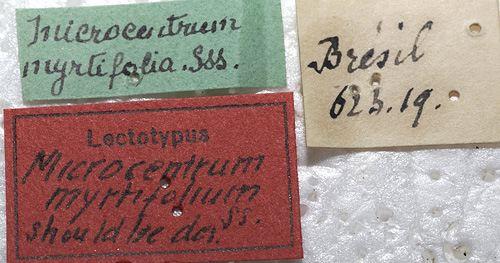 Microcentrum
myrtifolia. Sss.
Brésil
623.19.
Lectotypus
Microcentrum
myrtifolium
Ss.
should be des.